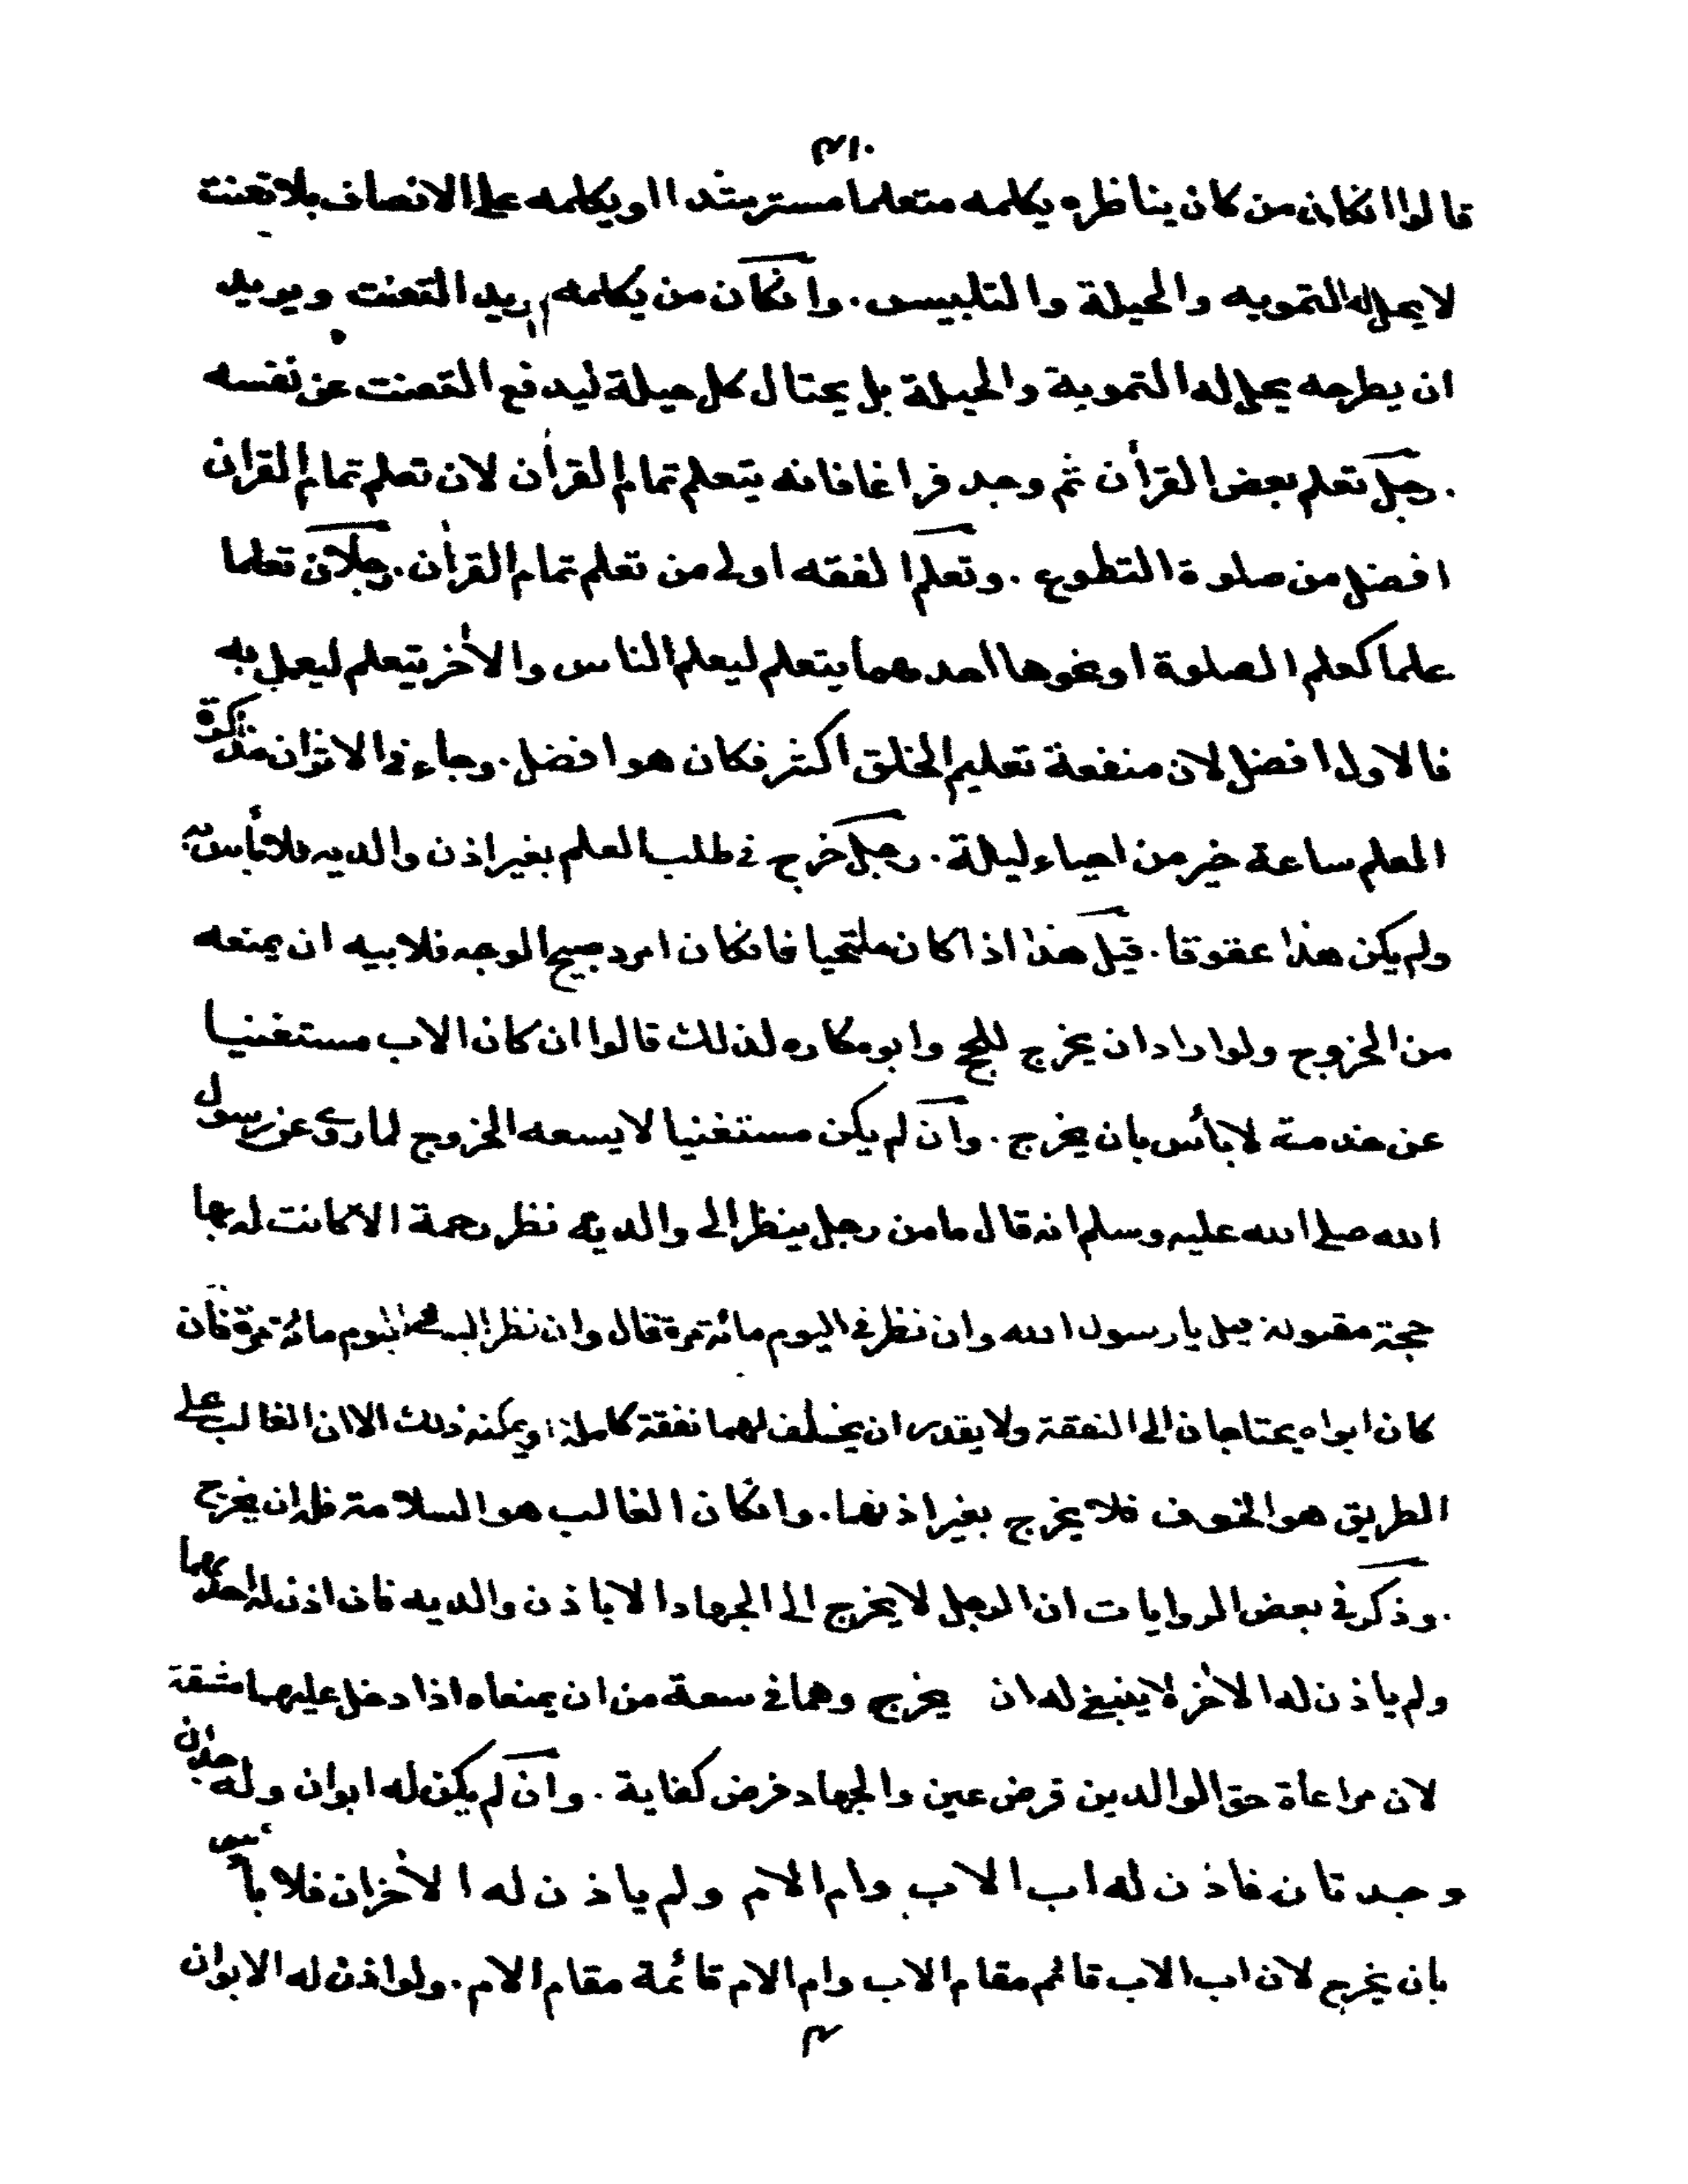 ٤١٠
قالوا انكان من كان يناظره يكلمه متعلما مسترشدا او يكلمه على الانصاف بلا تعنت
لا يحل له التمويه والحيلة والتلبيس . وانكان من يكلمه يريد التعنت ويريد
ان يطرحه يحل له التموية والحيلة بل يحتال كل حيلة ليدفع التعنت عن نفسه
. رجل تعلم بعض القرأن ثم وجد فراغا فانه يتعلم تمام القرأن لان تعلم تمام القران
افضل من صلوة التطوع . وتعلم الفقه اولى من تعلم تمام القرأن . رجلان تعلما
علما كعلم الصلوة او نحوها احدهما يتعلم ليعلم الناس والأخر يتعلم ليعمل به
فالاول افضل لان منفعة تعليم الخلق اكثر فكان هو افضل . وجاء في الاثران مذاكرة
العلم ساعة خير من احياء ليلة . رجل خرج في طلب العلم بغير اذن والديه فلا بأس به
ولم يكن هذا عقوقا . قيل هذا اذا كان ملتحيا فانكان امرد صبيح الوجه فلابيه ان يمنعه
من الخروج ولو اراد ان يخرج للحج وابو مكاره لذلك قالوا ان كان الاب مستغنيا
عن خدمته لا بأس بان يخرج . وان لم يكن مستغنيا لا يسعه الخروج لما روى عن رسول
الله صلى الله عليه وسلم انه قال ما من رجل ينظر الى والديه نظر رحمة الا كانت له بها
حجة مقبولة قيل يا رسول الله وان نظر في اليوم مائة مرة قال وان نظر اليه في اليوم مائة مرة فان
كان ابواه يحتاجان الى النفقة ولا يقدر ان يخلف لهما نفقة كاملة او يمكنه ذلك الا ان الغالب على
الطريق هو الخوف فلا يخرج بغير اذنهما . وانكان الغالب هو السلامة فله ان يخرج
. وذكر في بعض الروايات ان الرجل لا يخرج الى الجهاد الا باذن والديه فان اذن له احدهما
ولم ياذن له الأخر لا ينبغي له ان يخرج وهما في سعة من ان يمنعاه اذا دخل عليهما مشقة
لان مراعاة حق الوالدين فرض عين والجهاد فرض كفاية . وان لم يكن له ابوان وله جدان
وجدتان فاذن له اب الاب وام الام ولم ياذن له الأخران فلا بأس
بان يخرج لان اب الاب قائم مقام الاب وام الام قائمة مقام الام . ولو اذن له الابوان